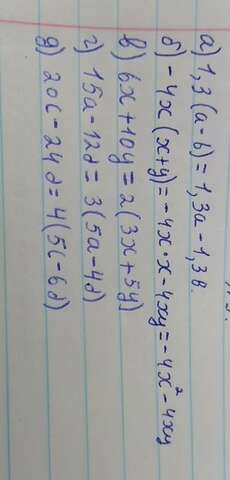 а) 1,3(a-b)=1,3a-1,3в.
б) -4x(x+y)=-4x·x-4xy=-4x²-4xy
в) 6x+10y=2(3x+5y)
г) 15a-12d=3(5a-4d)
д) 20c-24d=4(5c-6d)